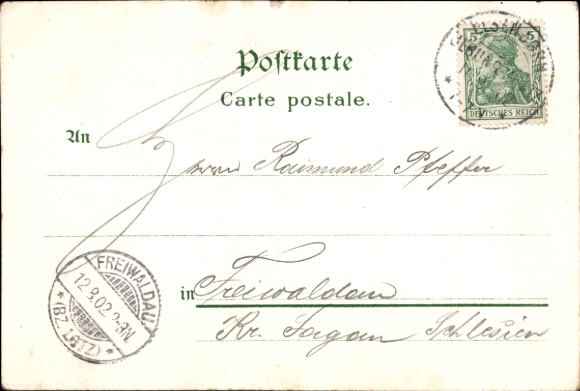 Postkarte
Carte postale.
5 5
DEUTSCHES REICH
An
Herrn Raimund Pfeffer
in Freiwaldau
Kr. Sagan Schlesien
FREIWALDAU
12.8.02.
* (BZ. LGTZ) *